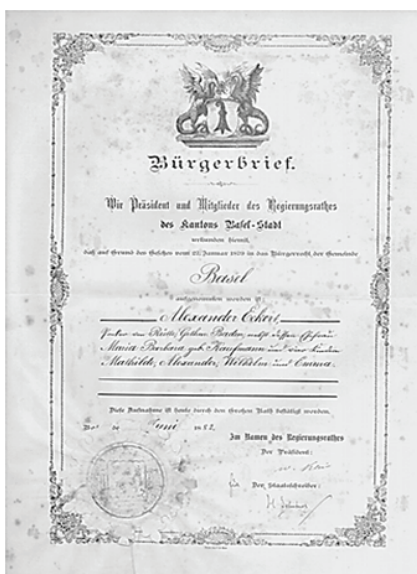 Bürgerbrief.
Wir Präsident und Mitglieder des Regierungsrathes
des Kantons Basel-Stadt
urkunden hiemit,
daß auf Grund des Gesetzes vom 27. Januar 1879 in das Bürgerrecht der Gemeinde
Basel
aufgenommen worden ist
Alexander Eckert,
Baden
Maria Barbara geb. Kaufmann und vier Kinder
Mathilde, Alexander, Wilhelm und Emma.
Diese Aufnahme ist heute durch den Großen Rath bestätigt worden.
Juni
Im Namen des Regierungsrathes
Der Präsident:
Der Staatsschreiber: